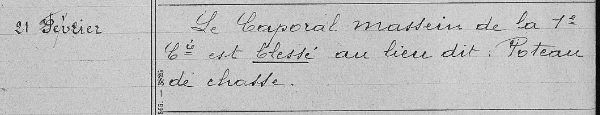 21 Février
Le Caporal Massein de la 1e
Cie est blessé au lieu dit. Poteau
de chasse.